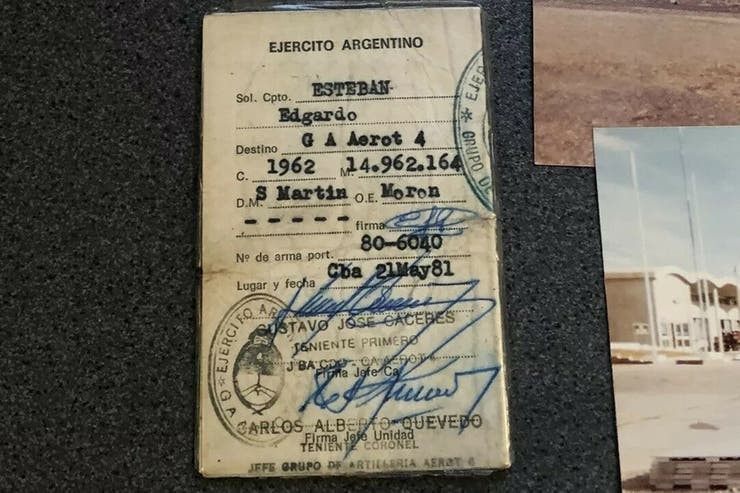 EJERCITO ARGENTINO
Sol. Cpto. ESTEBAN
Edgardo
Destino G A Aerot 4
C. 1962 M. 14.962.164
D.M. S Martin O.E. Moron
- - - - - firma
Nº de arma port. 80-6040
Lugar y fecha Cba 21May81
GUSTAVO JOSE CACERES
TENIENTE PRIMERO
Firma Jefe Ca
CARLOS ALBERTO QUEVEDO
Firma Jefe Unidad
TENIENTE CORONEL
JEFE GRUPO DE ARTILLERIA AEROT 4
EJERCITO AR
G A
EJER
GRUPO DE